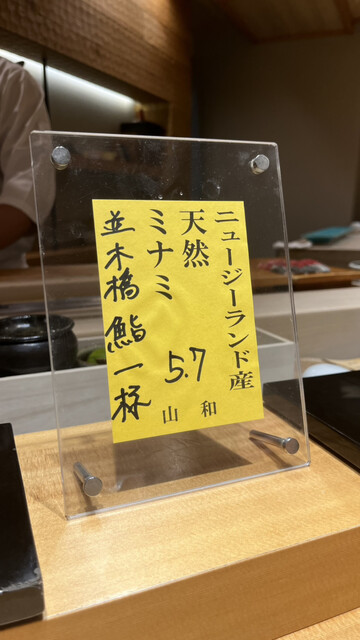 ニュージーランド産
天然
ミナミ
5.7
和
山
並木橋 鮨 一杯